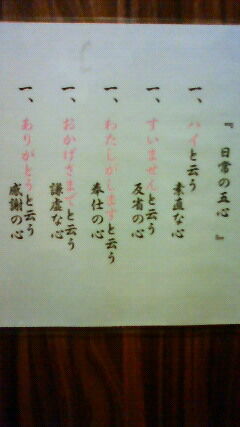 『 日常の五心 』
一、ハイと云う
素直な心
一、すいませんと云う
反省の心
一、わたしがしますと云う
奉仕の心
一、おかげさまでと云う
謙虚な心
一、ありがとうと云う
感謝の心